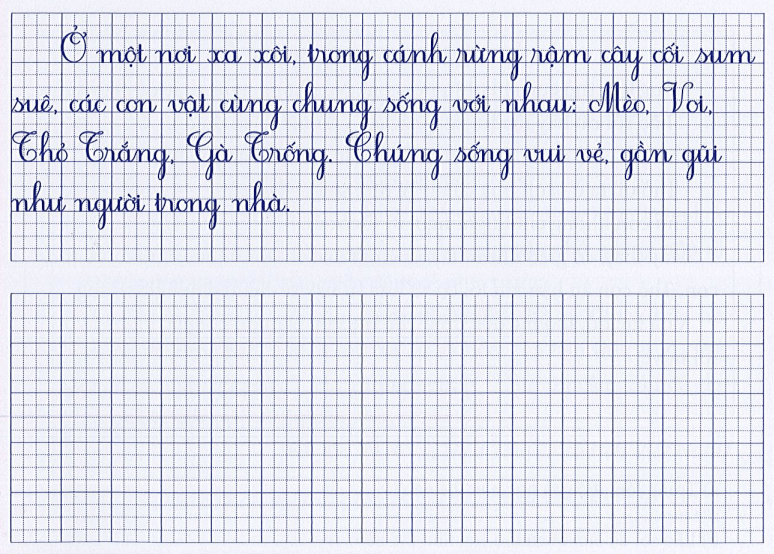 Ở một nơi xa xôi, trong cánh rừng rậm cây cối sum
suê, các con vật cùng chung sống với nhau: Mèo, Voi,
Thỏ Trắng, Gà Trống. Chúng sống vui vẻ, gần gũi
như người trong nhà.